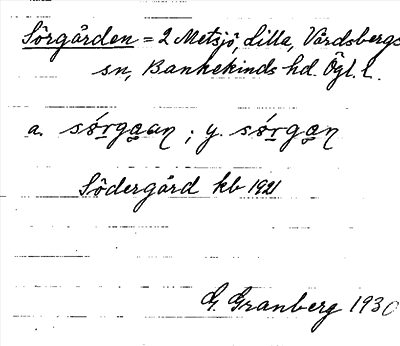 Sörgården = 2 Metsjö, Lilla, Vårdsbergs
sn, Bankekinds hd. Ögl. l.
a. sǿrgaan ; y. sǿrgan
Södergård kb 1921
G. Granberg 1930